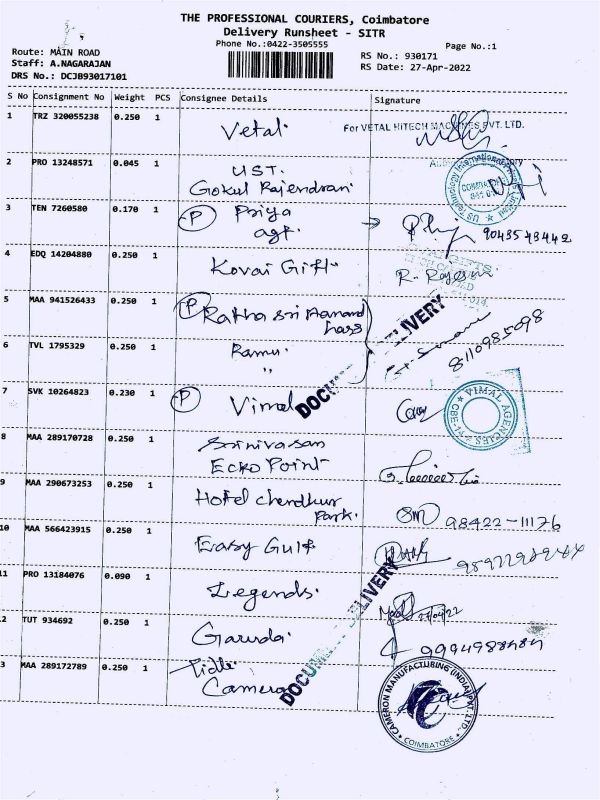 THE PROFESSIONAL COURIERS, Coimbatore
Delivery Runsheet - SITR
Phone No.:0422-3505555
Page No.:1
Route: MAIN ROAD
Staff: A.NAGARAJAN
DRS No.: DCJB93017101
RS No.: 930171
RS Date: 27-Apr-2022
S No Consignment No Weight PCS Consignee Details Signature
1 TRZ 320055238 0.250 1 Vetal. For VETAL HITECH MACHINES PVT. LTD.
2 PRO 13248571 0.045 1 UST.
Gokul Rajendran
3 TEN 7260580 0.170 1 P Priya
agt. 9043543442
4 EDQ 14204880 0.250 1 Kovai Gift. R. Rajesh
5 MAA 941526433 0.250 1 P Ratha Sri Aanand
DELIVERY
6 TVL 1795329 0.250 1 Ramu. 8110985098
"
DOCU
7 SVK 10264823 0.230 1 P Vimal VIMAL AGENCIES
8 MAA 289170728 0.250 1 Srinivasan
Ecko Point
9 MAA 290673253 0.250 1 Hotel Chendhur
Park. 98422-11176
10 MAA 566423915 0.250 1 Easy Gulf
11 PRO 13184076 0.090 1 Legends.
DELIVERY
2 TUT 934692 0.250 1 Garuda.
3 MAA 289172789 0.250 1 Tidle
Camera
DOCU
CAMERON MANUFACTURING (INDIA) PVT. LTD.
COIMBATORE